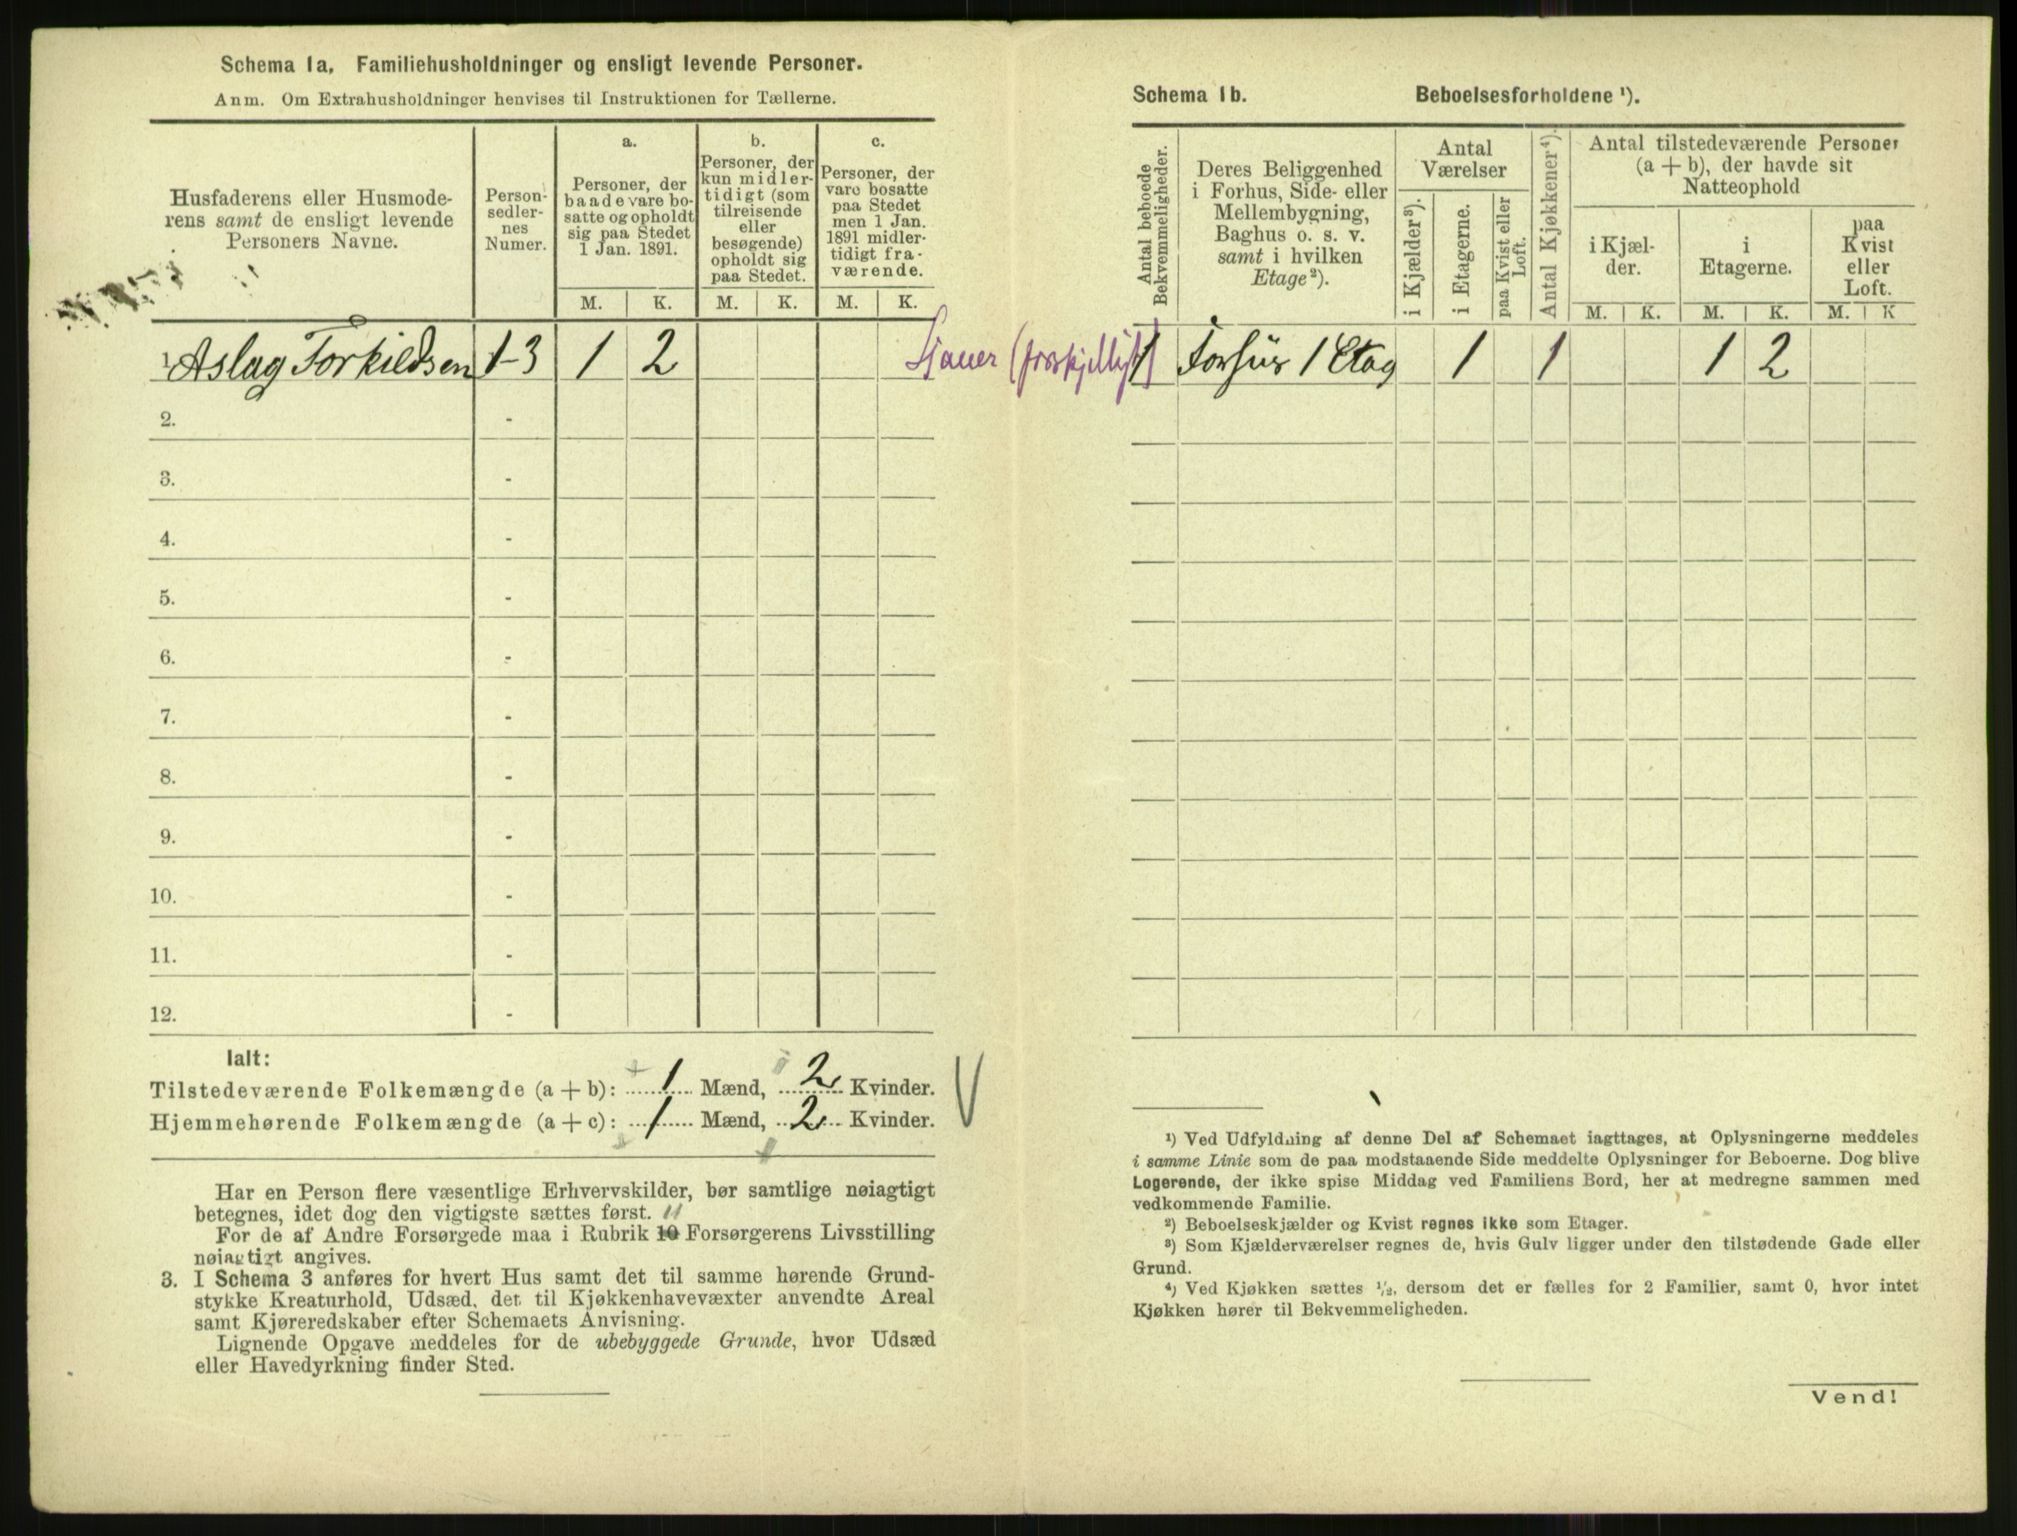 Schema 1a. Familiehusholdninger og ensligt levende Personer.
Anm. Om Extrahusholdninger henvises til Instruktionen for Tællerne.
Husfaderens eller Husmode-
rens samt de ensligt levende
Personers Navne.
Person-
sedler-
nes
Numer.
a.
Personer, der
baade vare bo-
satte og opholdt
sig paa Stedet
1 Jan. 1891.
b.
Personer, der
kun midler-
tidigt (som
tilreisende
eller
besøgende)
opholdt sig
paa Stedet.
c.
Personer, der
vare bosatte
paa Stedet
men 1 Jan.
1891 midler-
tidigt fra-
værende.
M. K. M. K. M. K.
1. Aslag Torkildsen 1-3 1 2
2. -
3. -
4. -
5. -
6. -
7. -
8. -
9. -
10. -
11. -
12. -
Ialt:
Tilstedeværende Folkemængde (a + b): 1 Mænd, 2 Kvinder.
Hjemmehørende Folkemængde (a + c): 1 Mænd, 2 Kvinder.
Har en Person flere væsentlige Erhvervskilder, bør samtlige nøiagtigt
betegnes, idet dog den vigtigste sættes først. 11
For de af Andre Forsørgede maa i Rubrik 10 Forsørgerens Livsstilling
nøiagtigt angives.
3. I Schema 3 anføres for hvert Hus samt det til samme hørende Grund-
stykke Kreaturhold, Udsæd, det til Kjøkkenhavevæxter anvendte Areal
samt Kjøreredskaber efter Schemaets Anvisning.
Lignende Opgave meddeles for de ubebyggede Grunde, hvor Udsæd
eller Havedyrkning finder Sted.
Schema 1b. Beboelsesforholdene ¹).
Antal beboede
Bekvemmeligheder.
Deres Beliggenhed
i Forhus, Side- eller
Mellembygning,
Baghus o. s. v.
samt i hvilken
Etage²).
Antal
Værelser
i Kjælder³).
i Etagerne.
paa Kvist eller
Loft.
Antal Kjøkkener⁴).
Antal tilstedeværende Personer
(a + b), der havde sit
Natteophold
i Kjæl-
der.
i
Etagerne.
paa
Kvist
eller
Loft.
M. K. M. K. M. K
Sjauer (forskjelligt)
1 Forhus 1 Etag 1 1 1 2
¹) Ved Udfyldning af denne Del af Schemaet iagttages, at Oplysningerne meddeles
i samme Linie som de paa modstaaende Side meddelte Oplysninger for Beboerne. Dog blive
Logerende, der ikke spise Middag ved Familiens Bord, her at medregne sammen med
vedkommende Familie.
²) Beboelseskjælder og Kvist regnes ikke som Etager.
³) Som Kjælderværelser regnes de, hvis Gulv ligger under den tilstødende Gade eller
Grund.
⁴) Ved Kjøkken sættes ½, dersom det er fælles for 2 Familier, samt 0, hvor intet
Kjøkken hører til Bekvemmeligheden.
Vend!